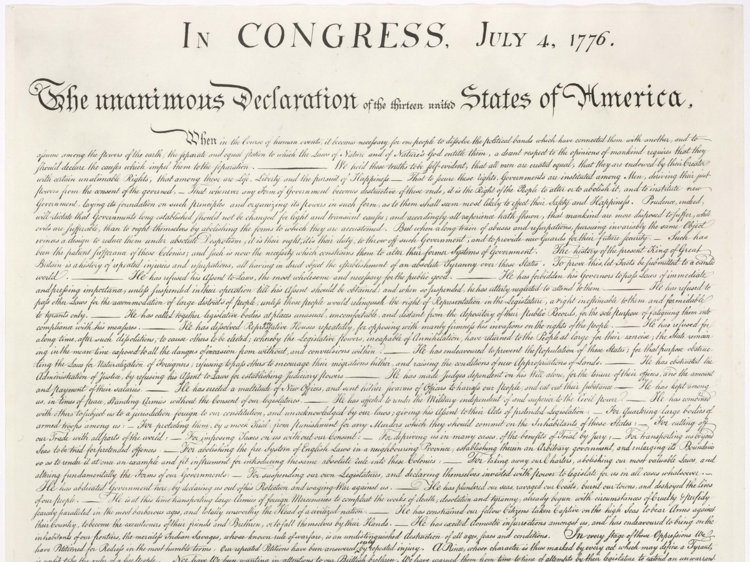 IN CONGRESS, JULY 4, 1776.
The unanimous Declaration of the thirteen united States of America,
When in the Course of human events, it becomes necessary for one people to dissolve the political bands which have connected them with another, and to
assume among the powers of the earth, the separate and equal station to which the Laws of Nature and of Nature's God entitle them, a decent respect to the opinions of mankind requires that they
should declare the causes which impel them to the separation. — We hold these truths to be self-evident, that all men are created equal, that they are endowed by their Creator
with certain unalienable Rights, that among these are Life, Liberty and the pursuit of Happiness. — That to secure these rights, Governments are instituted among Men, deriving their just
powers from the consent of the governed, — That whenever any Form of Government becomes destructive of these ends, it is the Right of the People to alter or to abolish it, and to institute new
Government, laying its foundation on such principles and organizing its powers in such form, as to them shall seem most likely to effect their Safety and Happiness. Prudence, indeed,
will dictate that Governments long established should not be changed for light and transient causes; and accordingly all experience hath shewn, that mankind are more disposed to suffer, while
evils are sufferable, than to right themselves by abolishing the forms to which they are accustomed. But when a long train of abuses and usurpations, pursuing invariably the same Object
evinces a design to reduce them under absolute Despotism, it is their right, it is their duty, to throw off such Government, and to provide new Guards for their future security. — Such has
been the patient sufferance of these Colonies; and such is now the necessity which constrains them to alter their former Systems of Government. The history of the present King of Great
Britain is a history of repeated injuries and usurpations, all having in direct object the establishment of an absolute Tyranny over these States. To prove this, let Facts be submitted to a candid
world. — He has refused his Assent to Laws, the most wholesome and necessary for the public good. — He has forbidden his Governors to pass Laws of immediate
and pressing importance, unless suspended in their operation till his Assent should be obtained; and when so suspended, he has utterly neglected to attend to them. — He has refused to
pass other Laws for the accommodation of large districts of people, unless those people would relinquish the right of Representation in the Legislature, a right inestimable to them and formidable
to tyrants only. — He has called together legislative bodies at places unusual, uncomfortable, and distant from the depository of their Public Records, for the sole purpose of fatiguing them into
compliance with his measures. — He has dissolved Representative Houses repeatedly, for opposing with manly firmness his invasions on the rights of the people. — He has refused for
a long time, after such dissolutions, to cause others to be elected; whereby the Legislative powers, incapable of Annihilation, have returned to the People at large for their exercise; the State remain-
ing in the mean time exposed to all the dangers of invasion from without, and convulsions within. — He has endeavoured to prevent the population of these States; for that purpose obstruc-
ting the Laws for Naturalization of Foreigners; refusing to pass others to encourage their migrations hither, and raising the conditions of new Appropriations of Lands. — He has obstructed the
Administration of Justice, by refusing his Assent to Laws for establishing Judiciary powers. — He has made Judges dependent on his Will alone, for the tenure of their offices, and the amount
and payment of their salaries. — He has erected a multitude of New Offices, and sent hither swarms of Officers to harrass our people, and eat out their substance. — He has kept among
us, in times of peace, Standing Armies without the Consent of our legislatures. — He has affected to render the Military independent of and superior to the Civil power. — He has combined
with others to subject us to a jurisdiction foreign to our constitution, and unacknowledged by our laws; giving his Assent to their Acts of pretended Legislation: — For Quartering large bodies of
armed troops among us: — For protecting them, by a mock Trial, from punishment for any Murders which they should commit on the Inhabitants of these States: — For cutting off
our Trade with all parts of the world: — For imposing Taxes on us without our Consent: — For depriving us in many cases, of the benefits of Trial by Jury: — For transporting us beyond
Seas to be tried for pretended offences — For abolishing the free System of English Laws in a neighbouring Province, establishing therein an Arbitrary government, and enlarging its Boundaries
so as to render it at once an example and fit instrument for introducing the same absolute rule into these Colonies: — For taking away our Charters, abolishing our most valuable Laws, and
altering fundamentally the Forms of our Governments: — For suspending our own Legislatures, and declaring themselves invested with power to legislate for us in all cases whatsoever. —
He has abdicated Government here, by declaring us out of his Protection and waging War against us. — He has plundered our seas, ravaged our Coasts, burnt our towns, and destroyed the lives
of our people. — He is at this time transporting large Armies of foreign Mercenaries to compleat the works of death, desolation and tyranny, already begun with circumstances of Cruelty & perfidy
scarcely paralleled in the most barbarous ages, and totally unworthy the Head of a civilized nation. — He has constrained our fellow Citizens taken Captive on the high Seas to bear Arms against
their Country, to become the executioners of their friends and Brethren, or to fall themselves by their Hands. — He has excited domestic insurrections amongst us, and has endeavoured to bring on the
inhabitants of our frontiers, the merciless Indian Savages, whose known rule of warfare, is an undistinguished destruction of all ages, sexes and conditions. In every stage of these Oppressions We
have Petitioned for Redress in the most humble terms: Our repeated Petitions have been answered only by repeated injury. A Prince, whose character is thus marked by every act which may define a Tyrant,
is unfit to be the ruler of a free people. Nor have We been wanting in attentions to our Brittish brethren. We have warned them from time to time of attempts by their legislature to extend an unwarrant-